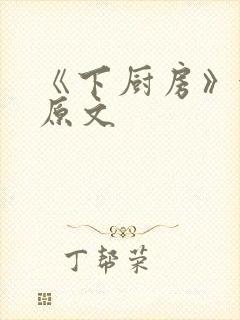 《下厨房》
原文
丁帮荣